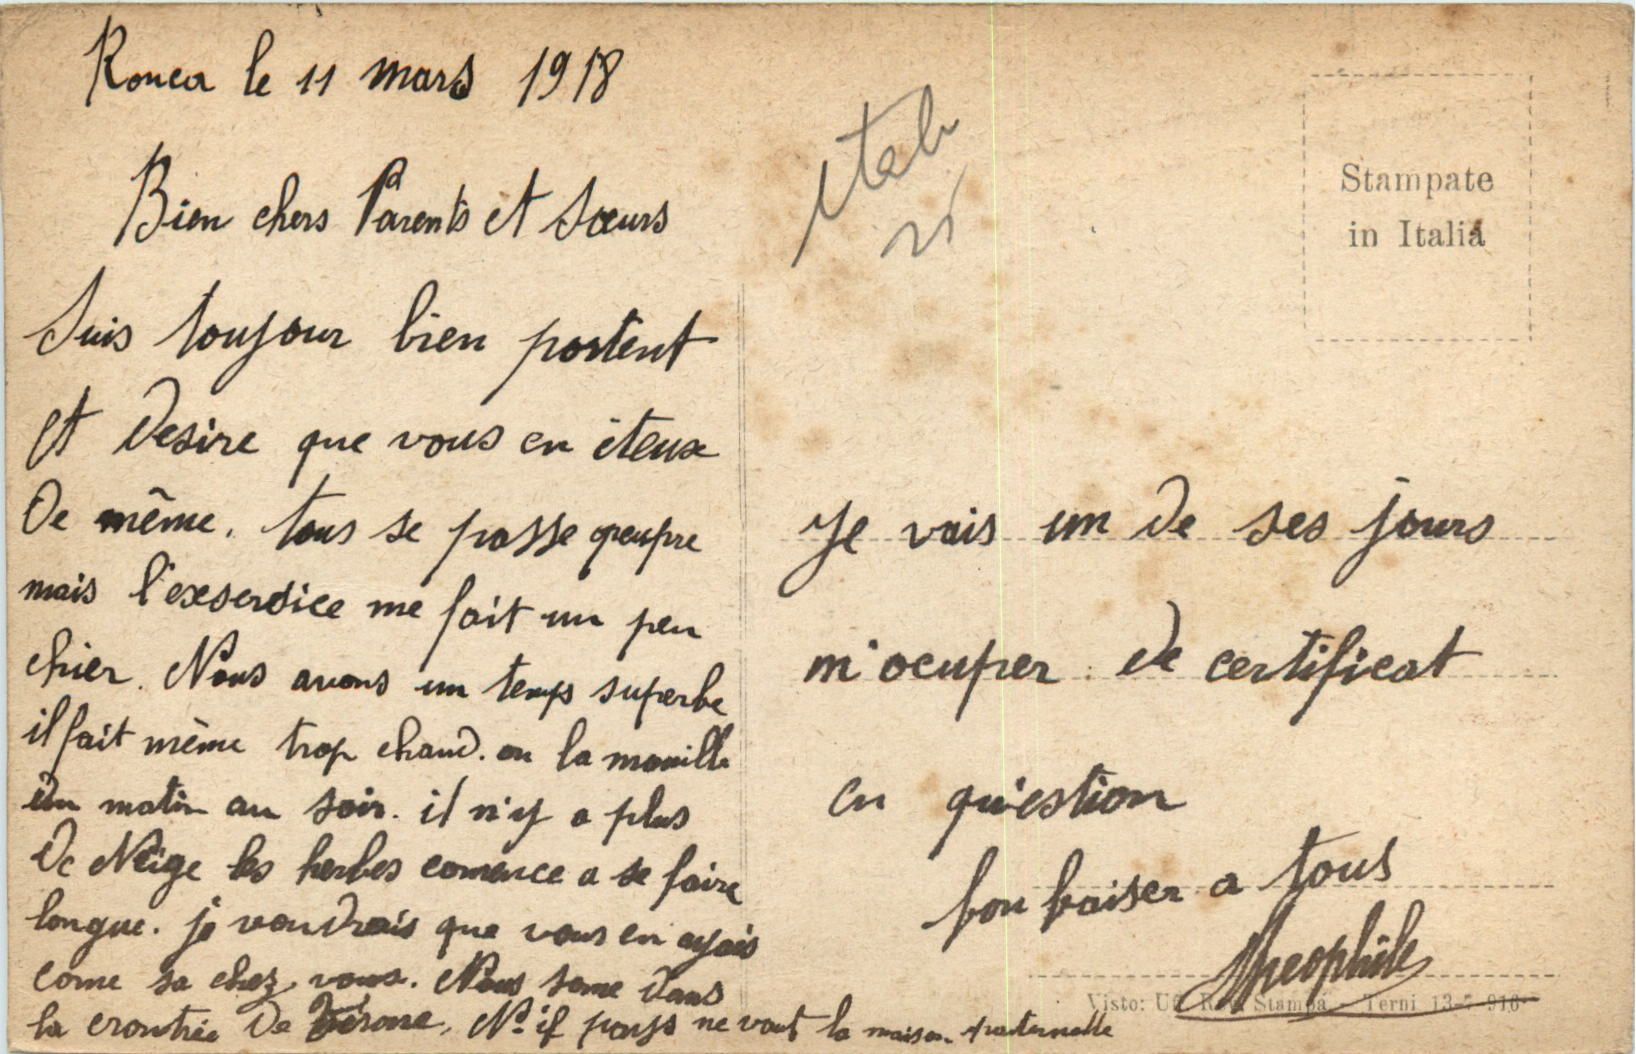 Ronca le 11 mars 1918
Bien chers Parents et Sœurs
Suis toujour bien portent
et desire que vous en iteux
de même. tous se passe apeupre
mais l'exserdice me fait un peu
chier. Nous avons un temps superbe
il fait même trop chaud. on la mouille
du matin au soir. il n'y a plus
de Neige les herbes comence a se faire
longue. je voudrais que vous en ayais
come sa chez vous. Nous some dans
la crontrée de Vérone, pays ne vaut la maison paternelle
Stampate
in Italia
Je vais un de ses jours
m'ocuper de certificat
en qu'estion
bon baiser a tous
Theophile
Visto: Uff. Rev. Stampa - Terni 13-7-916